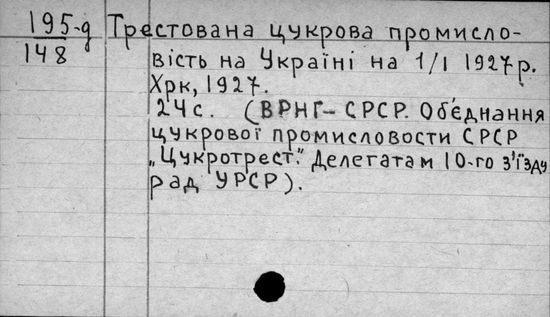 195-д Трестована цукрова промисло-
148
вість на Україні на 1/I 1927 р.
Хрк, 1927.
24 с. (ВРНГ – СРСР. Об'єднання
цукрової промисловости СРСР
„Цукротрест." Делегатам 10-го з'їзду
рад УРСР).